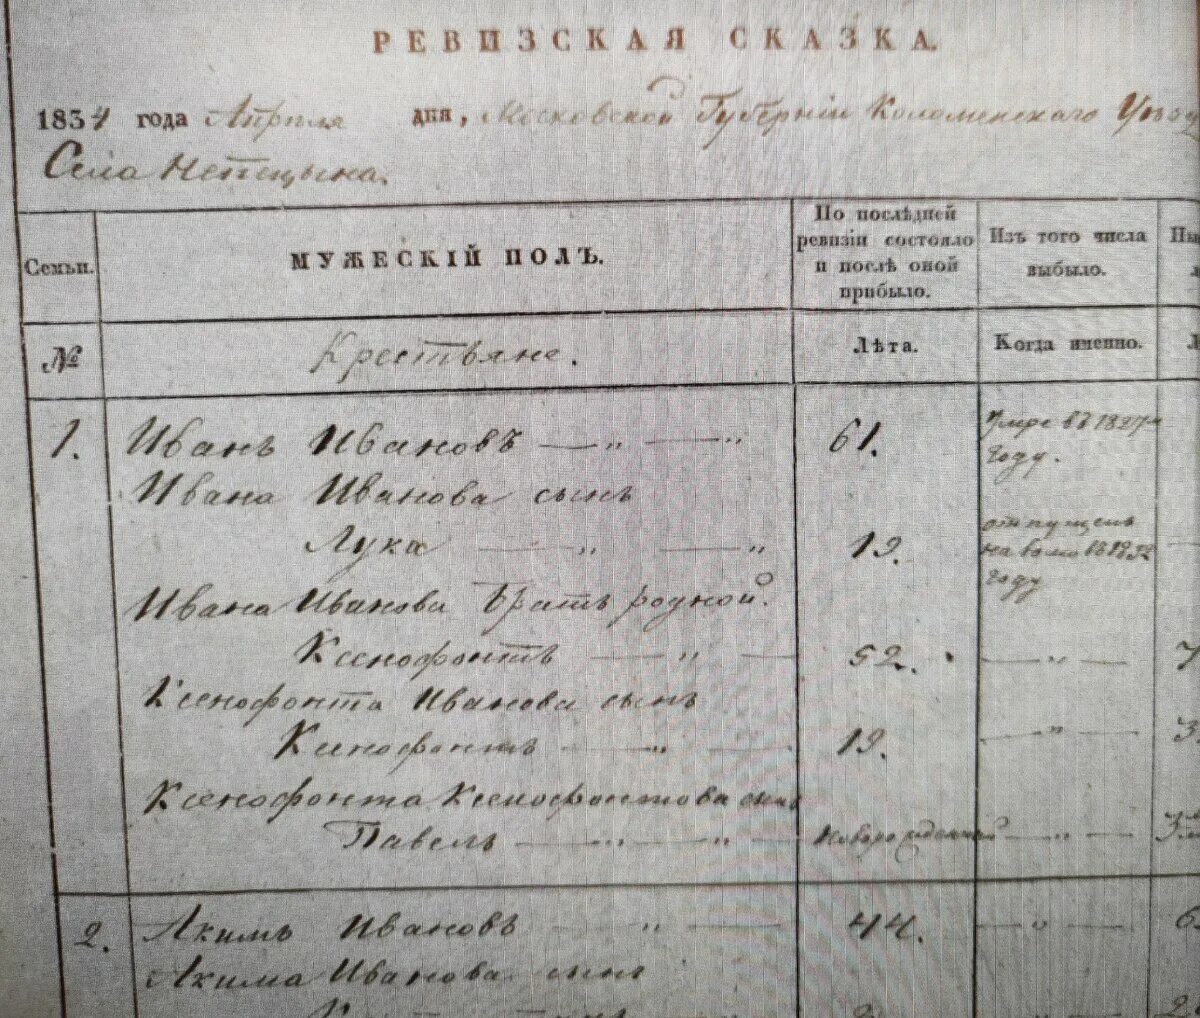 РЕВИЗСКАЯ СКАЗКА.
1834 года Апреля дня, Московской Губернiи Коломенскаго Уѣзд
Села Непецына.
Семьи.
МУЖЕСКIЙ ПОЛЪ.
По послѣдней
ревизiи состояло
и послѣ оной
прибыло.
Изъ того числа
выбыло.
№
Крестьяне.
Лѣта.
Когда именно.
1. Иванъ Ивановъ — „ — „ 61. Умре въ 1827м
году.
Ивана Иванова сынъ
Лука — „ — „ 19. отпущенъ
на волю
году
Ивана Иванова братъ родной.
Ксенофонтъ — „ — 52. — „ —
Ксенофонта Иванова сынъ
Ксенофонтъ — „ — 19. — „ — 3
Ксенофонта Ксенофонтова сынъ
Павелъ — „ — „ — новорожденный — „ —
2. Акимъ Ивановъ — „ — 44. — „ — 6
Акима Иванова сынъ